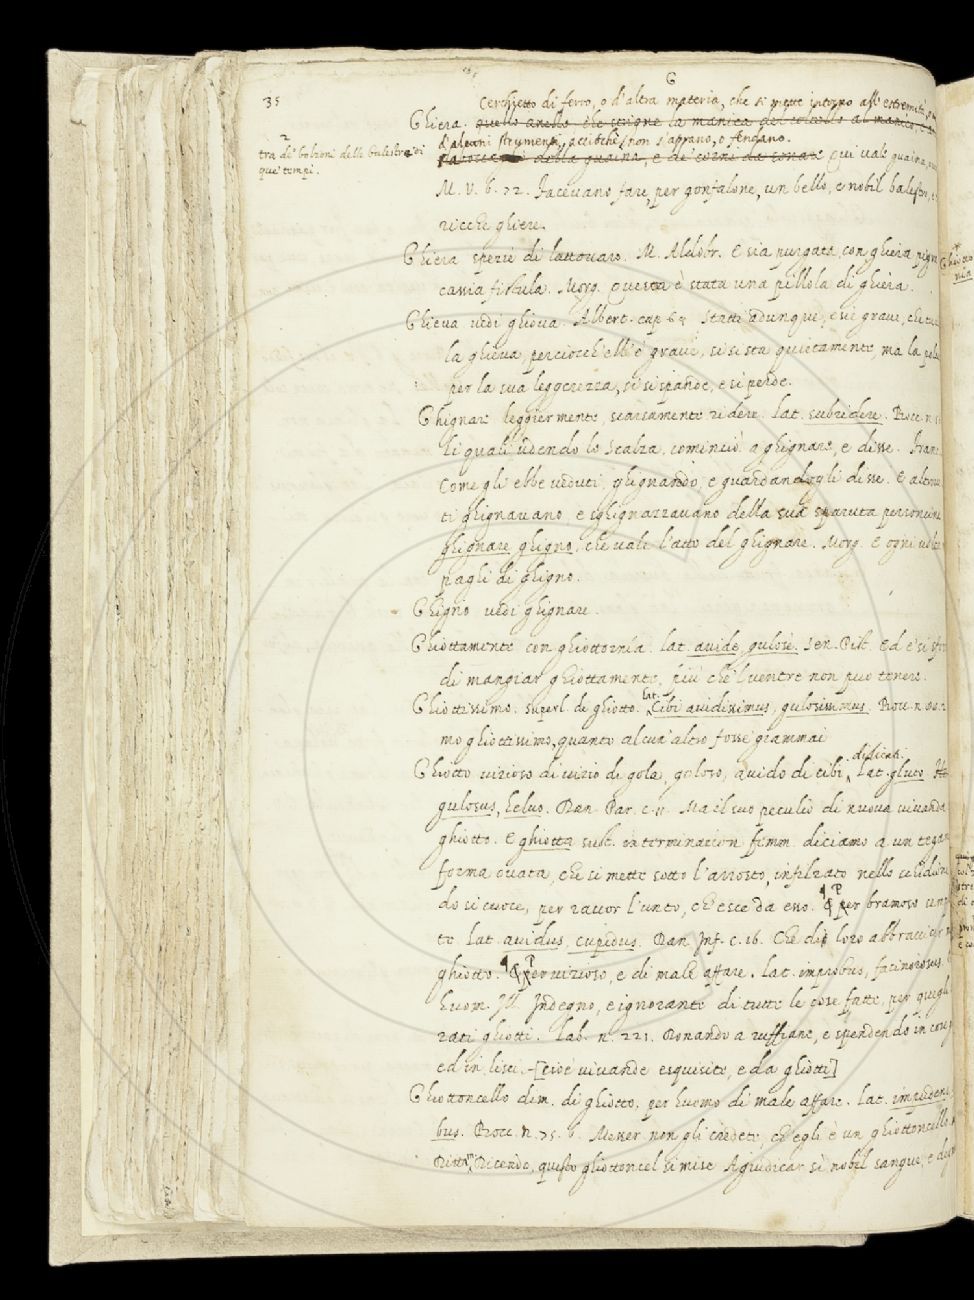 G
35
Cerchietto di ferro, o d'altra materia, che si mette intorno all'estremità,
Ghiera. quello anello, che strigne la manica del coltello al manico,
d'alcuni strumenti, acciochè non s'aprano, o fendano.
della guaina, e de' corni da sonare Qui vale guaina,
2
tra di' bolzoni delle balestre di
que' tempi.
M. V. 6. 72. Facevano fare, per gonfalone, un bello, e nobil balestro,
ricche ghiere.
Ghiera spezie di lattovaro. M. Aldobr. E sia purgata, con ghiera pigra
cassia fistula. Morg. Questa è stata una pillola di ghiera.
Ghieva vedi ghiova. Albert. cap. Statti adunque, e sie grave,
la ghieva, perciocch'ell'è grave, si si sta quietamente, ma la
per la sua leggerezza, si si spande, e si perde.
Ghignare leggiermente, scarsamente ridere. lat. subridere. Bocc. n.
li quali udendo lo Scalza, cominciò a ghignare, e disse.
Come gli ebbe veduti, ghignando, e guardandogli disse. E
ti ghignavano e sghignazzavano della sua sparuta
ghignare ghigno, che vale l'atto del ghignare. Morg. E ogni
pagli di ghigno.
Ghigno vedi ghignare.
Ghiottamente con ghiottornía. lat. avide, gulose. Sen. Pist. Ed e' si
di mangiar ghiottamente, più che 'l ventre non può tenere.
Ghiottissimo. superl. di ghiotto. lat. Cibi avidissimus, gulosissimus. Bocc. n.
mo ghiottissimo, quanto alcun altro fosse giammai
Ghiotto vizioso di vizio di gola, goloso, avido di cibi dilicati. lat. gluto
gulosus, heluo. Dan. Par. c. 11. Ma il suo peculio di nuova vivanda
ghiotto. E ghiotta sust. in terminazion femm. diciamo a un
forma ovata, che si mette sotto l'arrosto, infilzato nello
do si cuoce, per raccor l'unto, ch'esce da esso. ¶ P per bramoso
to. lat. avidus, cupidus. Dan. Inf. c. 16. Che di loro abbracciar
ghiotto. ¶ P per vizioso, e di male affare. lat. improbus, facinorosus.
huom. Ill. Indegno, e ignorante di tutte le cose fatte, per quegli
rati ghiotti. Lab. n. 221. Donando a ruffiane, e spendendo in cose
ed in lisci. [cioè vivande esquisite, e da ghiotti]
Ghiottoncello dim. di ghiotto, per huomo di male affare. lat.
bus. Bocc. n. 75. 6. Messer non gli credete, ch'egli è un ghiottoncello
Dicendo, questo ghiottoncel si mise A giudicar sì nobil sangue, e